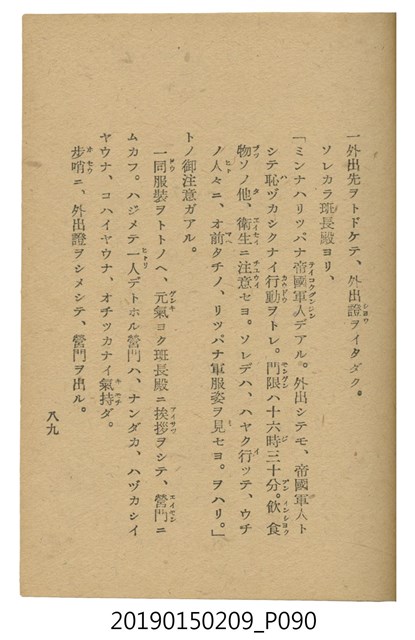 一外出先ヲトドケテ、外出證ヲイタダク。
ソレカラ班長殿ヨリ、
「ミンナハリッパナ帝國軍人デアル。外出シテモ、帝國軍人ト
シテ恥ヅカシクナイ行動ヲトレ。門限ハ十六時三十分。飲食
物ソノ他、衛生ニ注意セヨ。ソレデハ、ハヤク行ッテ、ウチ
ノ人々ニ、オ前タチノ、リッパナ軍服姿ヲ見セヨ。ヲハリ。」
トノ御注意ガアル。
一同服裝ヲトトノヘ、元氣ヨク班長殿ニ挨拶ヲシテ、營門ニ
ムカフ。ハジメテ一人デトホル營門ハ、ナンダカ、ハヅカシイ
ヤウナ、コハイヤウナ、オチツカナイ氣持ダ。
步哨ニ、外出證ヲシメシテ、營門ヲ出ル。
八九
20190150209_P090